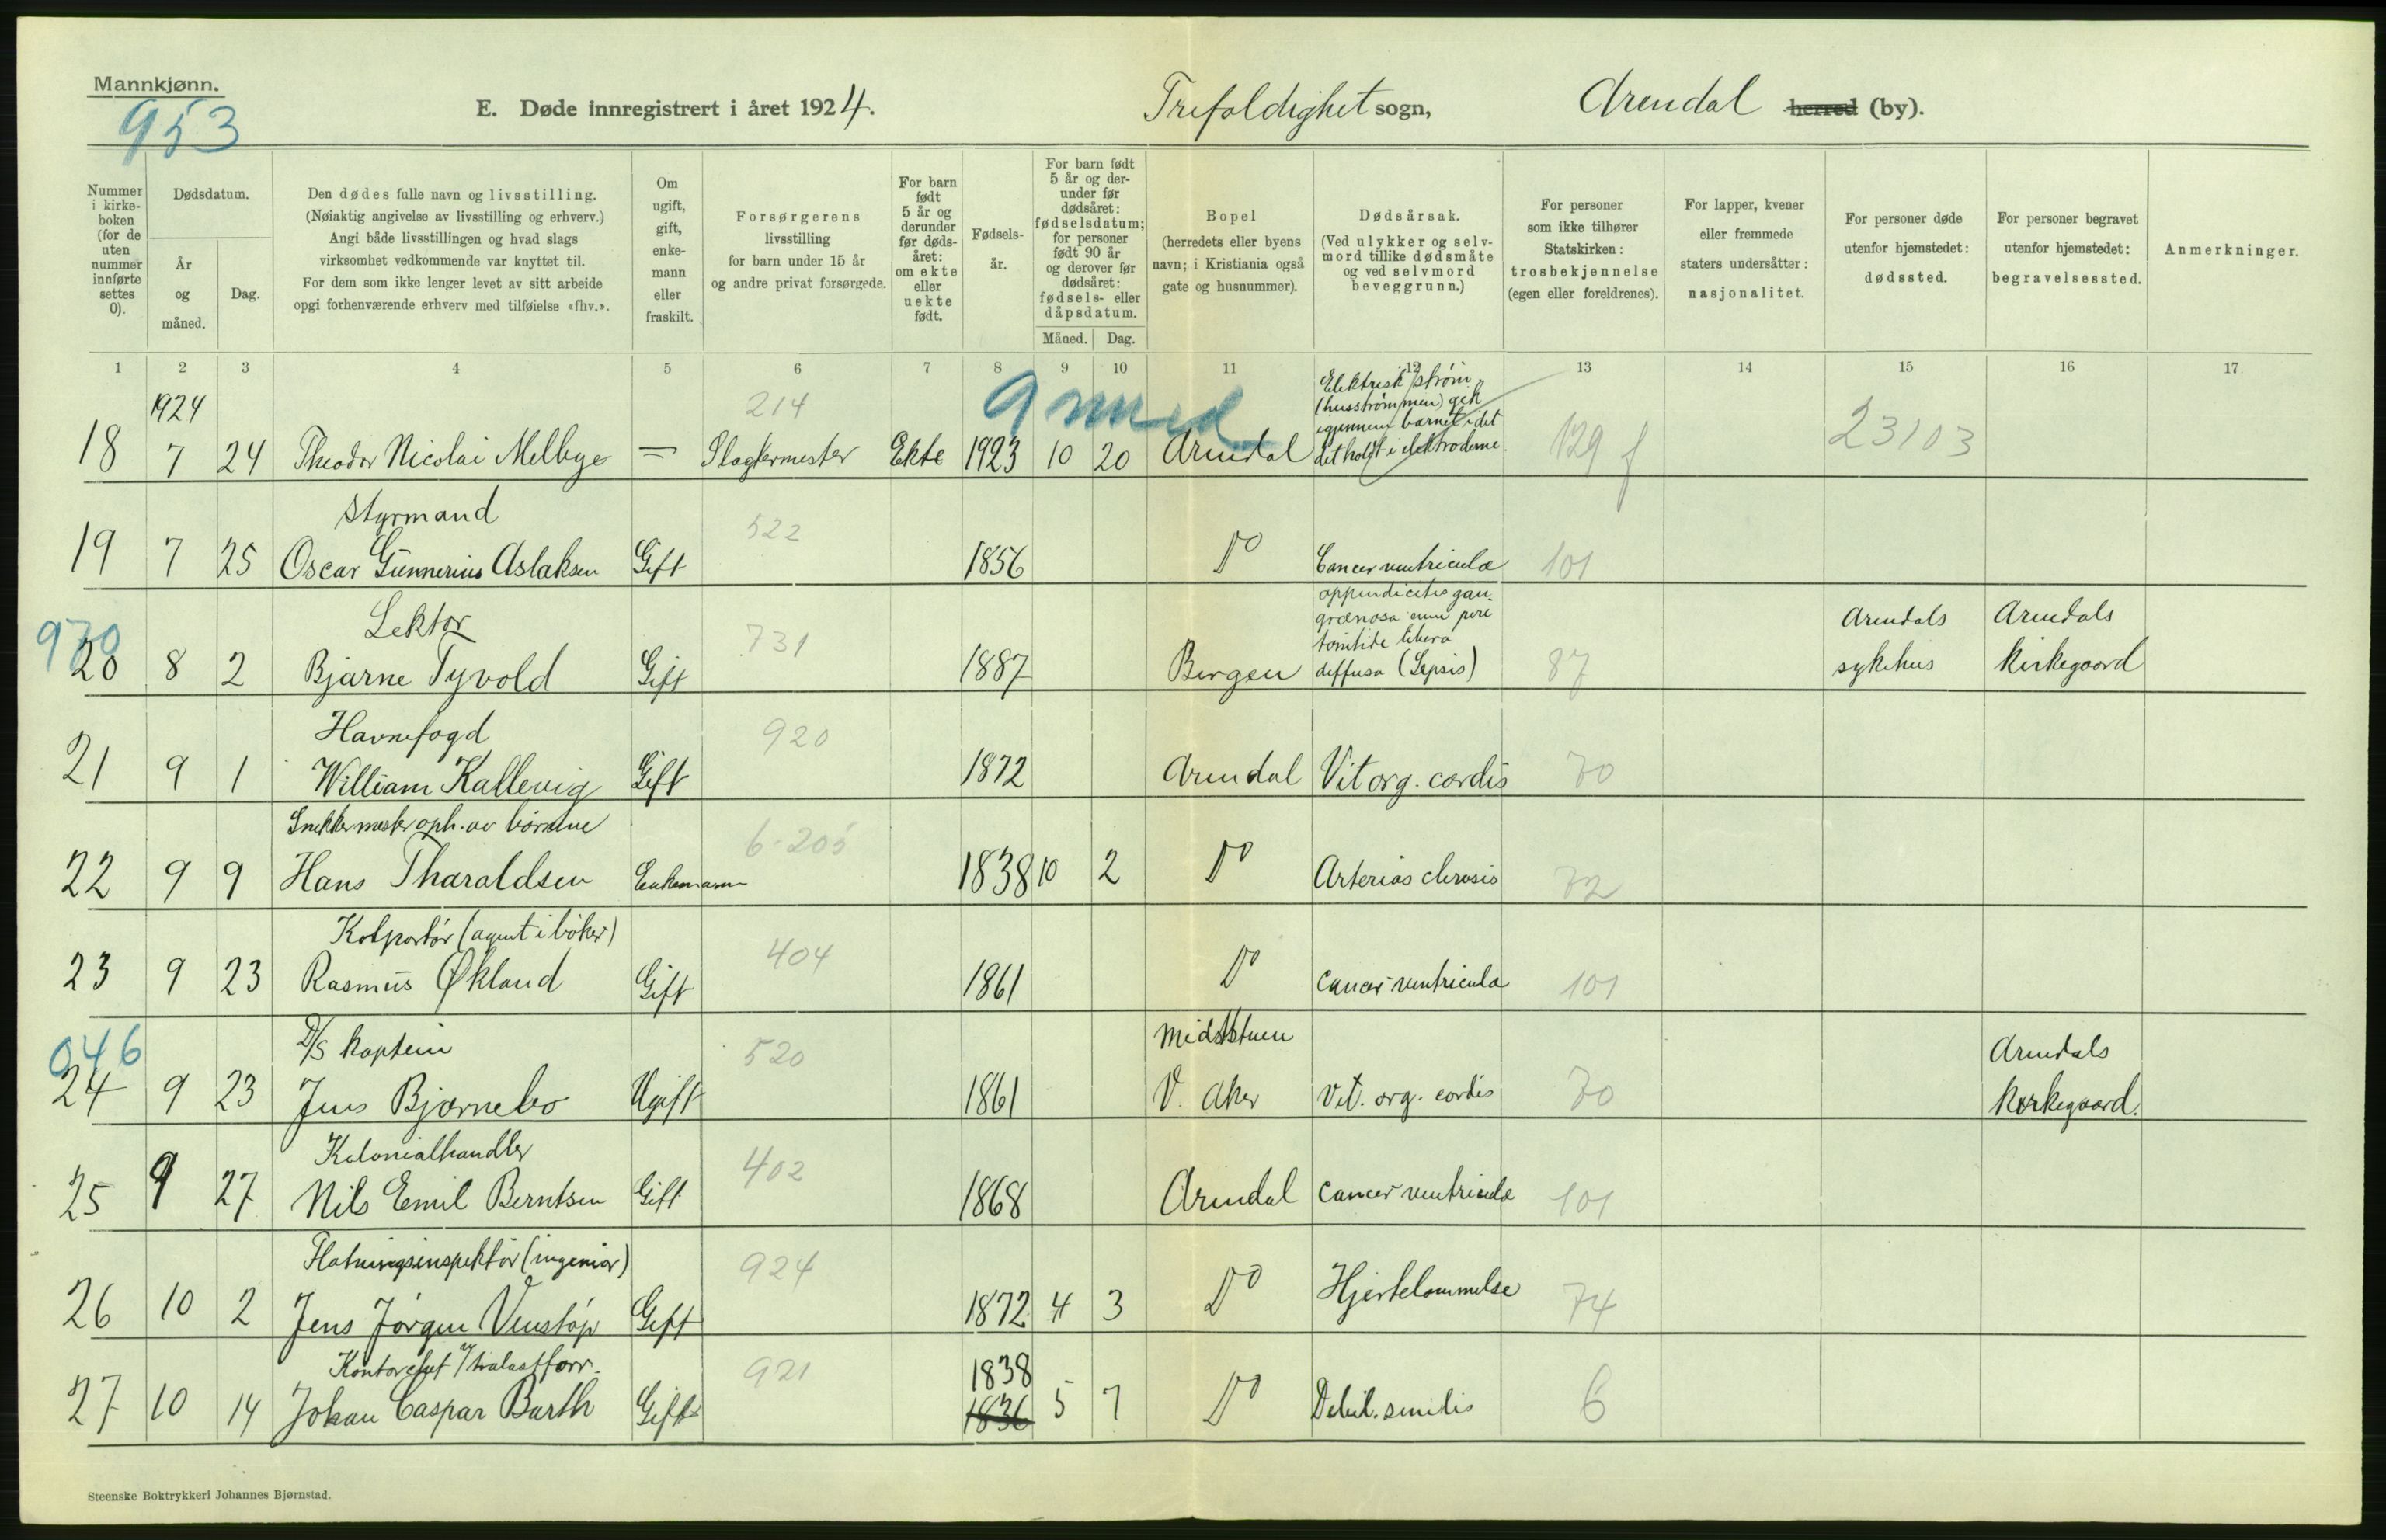 Mannkjønn.
953
E. Døde innregistrert i året 1924.
Trefoldighet sogn,
Arendal herred (by).
Nummer i kirke-boken (for de uten nummer innførte settes 0).
Dødsdatum.
År og måned.
Dag.
Den dødes fulle navn og livsstilling.
(Nøiaktig angivelse av livsstilling og erhverv.)
Angi både livsstillingen og hvad slags
virksomhet vedkommende var knyttet til.
For dem som ikke lenger levet av sitt arbeide
opgi forhenværende erhverv med tilføielse «fhv.».
Om ugift, gift, enke-mann eller fraskilt.
Forsørgerens
livsstilling
for barn under 15 år
og andre privat forsørgede.
For barn født 5 år og derunder før døds-året: om ekte eller uekte født.
Fødsels-år.
For barn født 5 år og der-under før dødsåret: fødselsdatum; for personer født 90 år og derover før dødsåret: fødsels- eller dåpsdatum.
Måned.
Dag.
Bopel
(herredets eller byens
navn; i Kristiania også
gate og husnummer).
Dødsårsak.
(Ved ulykker og selv-
mord tillike dødsmåte
og ved selvmord
beveggrunn.)
For personer
som ikke tilhører
Statskirken:
trosbekjennelse
(egen eller foreldrenes).
For lapper, kvener
eller fremmede
staters undersåtter:
nasjonalitet.
For personer døde
utenfor hjemstedet:
dødssted.
For personer begravet
utenfor hjemstedet:
begravelsessted.
Anmerkninger.
1 2 3 4 5 6 7 8 9 10 11 12 13 14 15 16 17
1924
214
9 mned
Elektrisk strøm
(husstrømmen) gik
igjennem barnet idet
det holdt i elektroderne.
18 7 24 Theodor Nicolai Melbye — Slagtermester Ekte 1923 10 20 Arendal 129 f 23103
Styrmand
522
19 7 25 Oscar Gunnerius Aslaksen Gift 1856 Do Cancer ventriculæ 101
970
Lektor
731
appendicitis gan-
grænosa cum peri
tonitide libera
diffusa (Sepsis)
Arendals Arendals
20 8 2 Bjarne Tyvold Gift 1887 Bergen 87 sykehus kirkegaard
Havnefogd
920
21 9 1 William Kallevig Gift 1872 Arendal Vit org. cordis 70
Snekkermester oph. av børnene
6.205
22 9 9 Hans Tharaldsen Enkemann 1838 10 2 Do Arterios clerosis 72
Kolportør (agent i bøker)
404
23 9 23 Rasmus Økland Gift 1861 Do Cancer ventricula 101
046
D/S kaptein
520
Midtstuen
Arendals
24 9 23 Jens Bjørnebo Ugift 1861 V. Aker Vit. org. cordis 70 kirkegaard.
Kolonialhandler
402
25 9 27 Nils Emil Berntsen Gift 1868 Arendal Cancer ventriculæ 101
Flatningsinspektør (ingeniør)
924
26 10 2 Jens Jørgen Venstøp Gift 1872 4 3 Do Hjertelammelse 74
Kontorchef v/ trælastforr.
921
1838
27 10 14 Johan Caspar Barth Gift 1836 5 7 Do Debil. senilis 6
Steenske Boktrykkeri Johannes Bjørnstad.